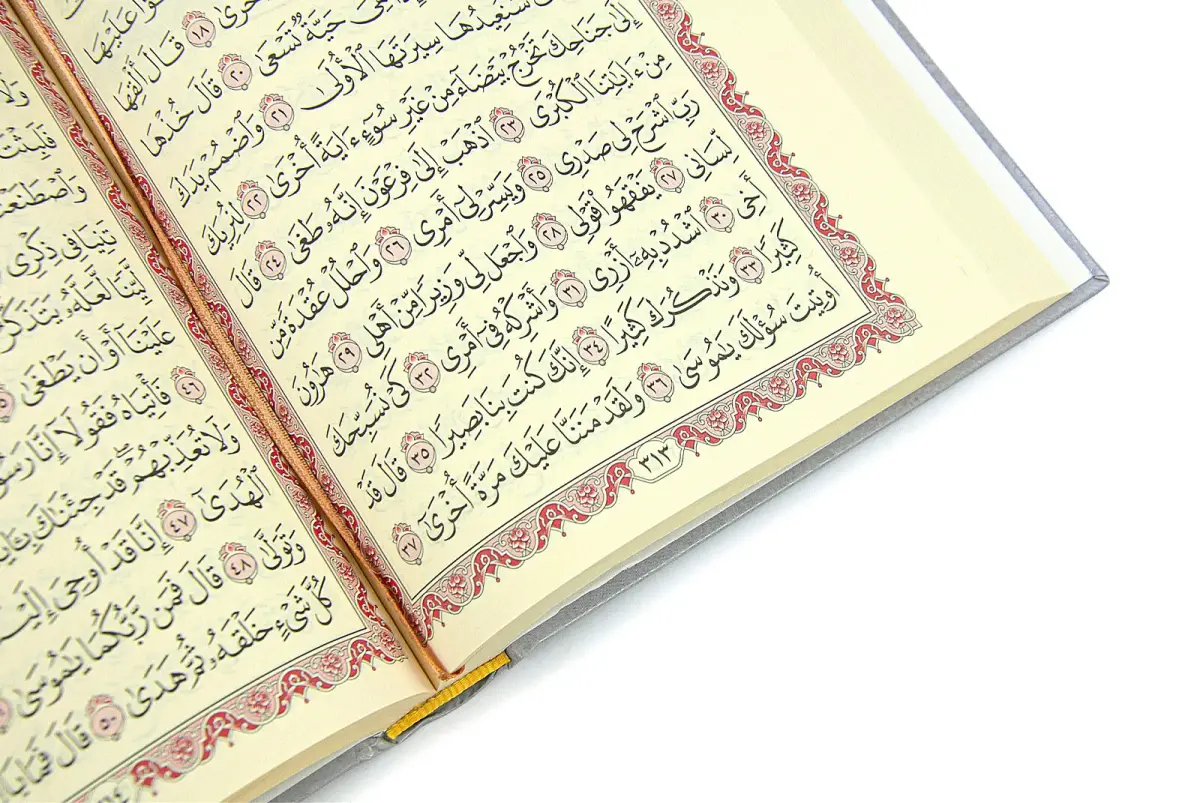 عَلَيْهَا
أُخْرَىٰ ١٨ قَالَ أَلْقِهَا
حَيَّةٌ تَسْعَىٰ ٢٠ قَالَ خُذْهَا
سَنُعِيدُهَا سِيرَتَهَا ٱلْأُولَىٰ ٢١ وَٱضْمُمْ يَدَكَ
إِلَىٰ جَنَاحِكَ تَخْرُجْ بَيْضَآءَ مِنْ غَيْرِ سُوٓءٍ ءَايَةً أُخْرَىٰ ٢٢ لِنُرِيَكَ
مِنْ ءَايَٰتِنَا ٱلْكُبْرَى ٢٣ ٱذْهَبْ إِلَىٰ فِرْعَوْنَ إِنَّهُۥ طَغَىٰ ٢٤ قَالَ
رَبِّ ٱشْرَحْ لِى صَدْرِى ٢٥ وَيَسِّرْ لِىٓ أَمْرِى ٢٦ وَٱحْلُلْ عُقْدَةً مِّن
لِّسَانِى ٢٧ يَفْقَهُوا۟ قَوْلِى ٢٨ وَٱجْعَل لِّى وَزِيرًا مِّنْ أَهْلِى ٢٩ هَٰرُونَ
أَخِى ٣٠ ٱشْدُدْ بِهِۦٓ أَزْرِى ٣١ وَأَشْرِكْهُ فِىٓ أَمْرِى ٣٢ كَىْ نُسَبِّحَكَ
كَثِيرًا ٣٣ وَنَذْكُرَكَ كَثِيرًا ٣٤ إِنَّكَ كُنتَ بِنَا بَصِيرًا ٣٥ قَالَ قَدْ
أُوتِيتَ سُؤْلَكَ يَٰمُوسَىٰ ٣٦ وَلَقَدْ مَنَنَّا عَلَيْكَ مَرَّةً أُخْرَىٰٓ ٣٧
٣١٣
وَلَا
فَلَبِثْتَ
تَنِيَا فِى ذِكْرِى
لَّيِّنًا لَّعَلَّهُۥ يَتَذَكَّرُ
عَلَيْنَآ أَوْ أَن يَطْغَىٰ
٤٦ فَأْتِيَاهُ فَقُولَآ إِنَّا
وَلَا تُعَذِّبْهُمْ قَدْ جِئْنَٰكَ
ٱلْهُدَىٰٓ ٤٧ إِنَّا قَدْ أُوحِىَ
وَتَوَلَّىٰ ٤٨ قَالَ فَمَن رَّبُّكُمَا يَٰمُوسَىٰ
كُلَّ شَىْءٍ خَلْقَهُۥ ثُمَّ هَدَىٰ ٥٠ قَالَ فَمَا